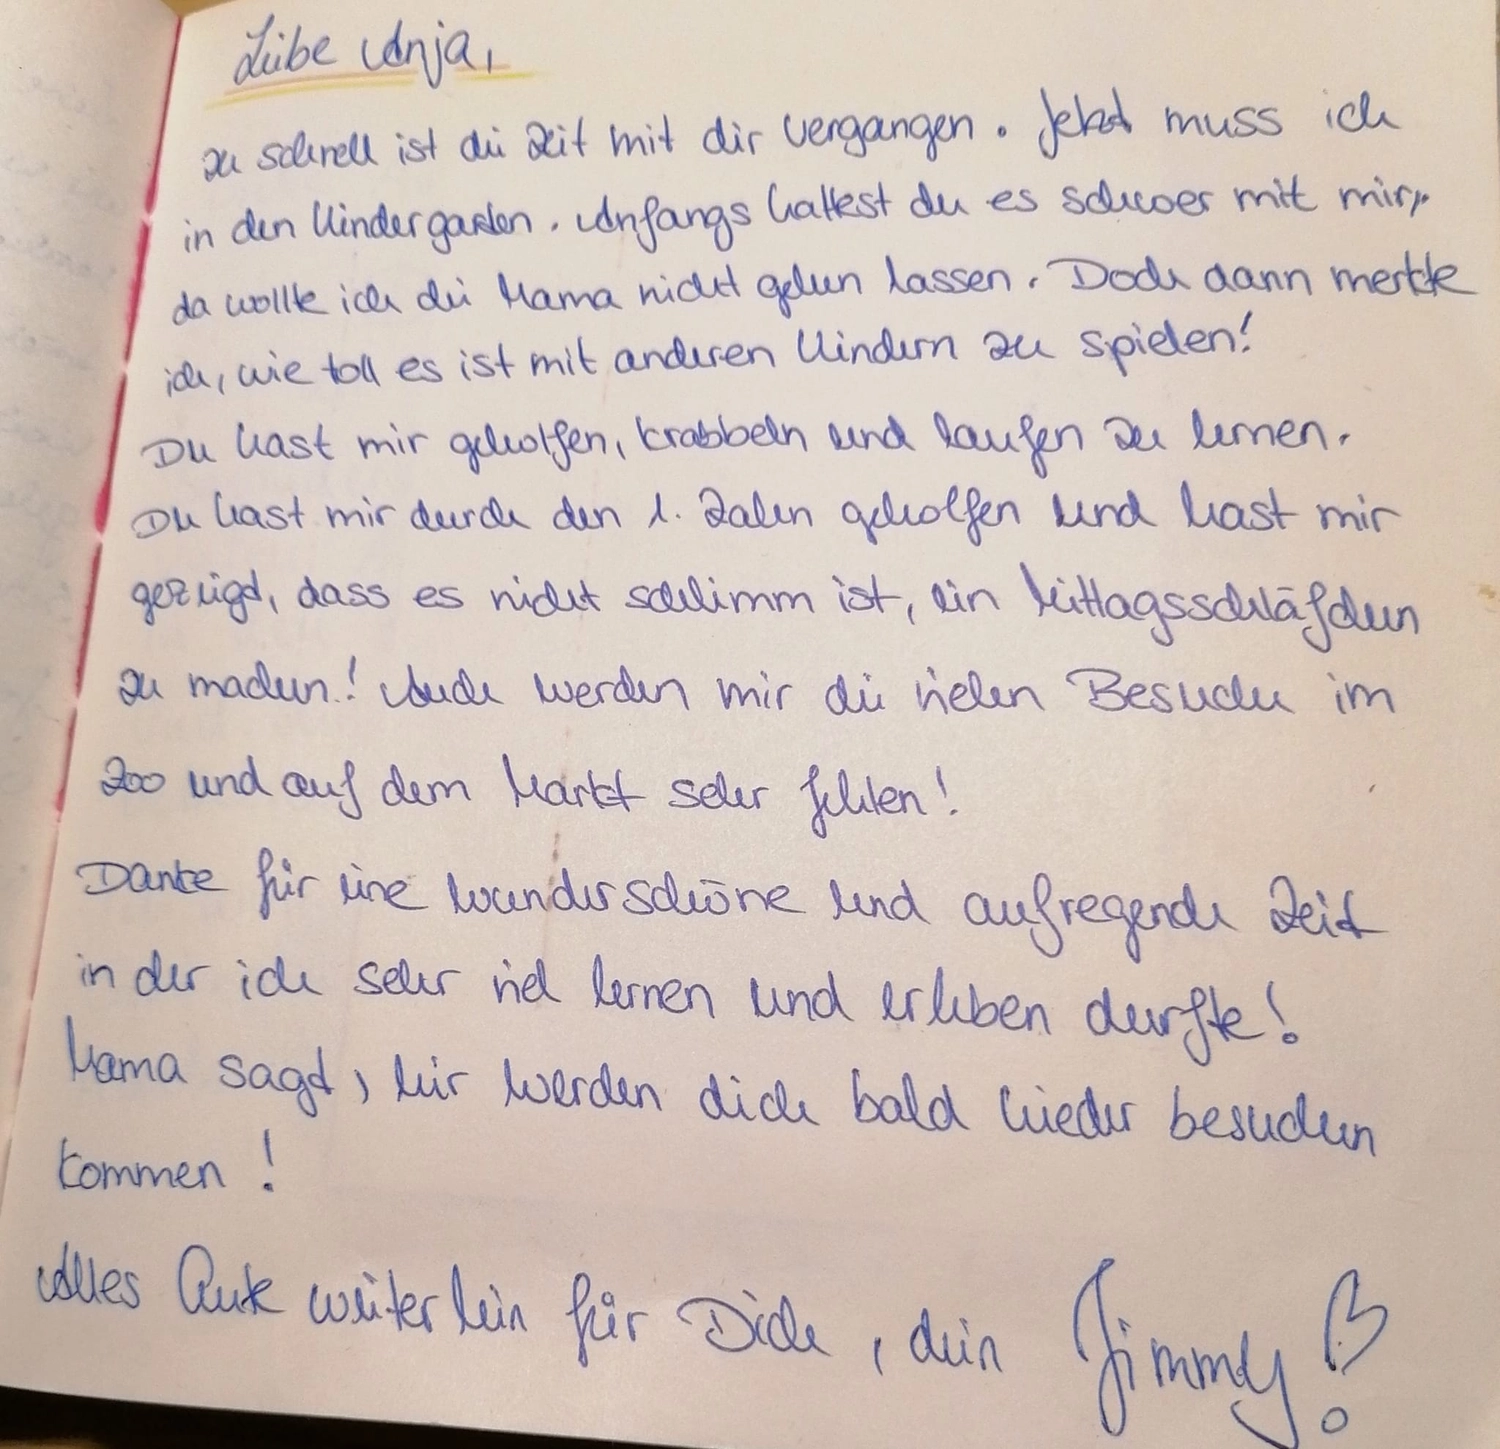 Liebe Anja,
zu schnell ist die Zeit mit dir vergangen. Jetzt muss ich
in den Kindergarten. Anfangs hattest du es schwer mit mir,
da wollte ich die Mama nicht gehen lassen. Doch dann merkte
ich, wie toll es ist mit anderen Kindern zu spielen!
Du hast mir geholfen, krabbeln und laufen zu lernen.
Du hast mir durch den 1. Zahn geholfen und hast mir
gezeigt, dass es nicht schlimm ist, ein Mittagsschläfchen
zu machen! Auch werden mir die vielen Besuche im
Zoo und auf dem Markt sehr fehlen!
Danke für eine wunderschöne und aufregende Zeit
in der ich sehr viel lernen und erleben durfte!
Mama sagt, wir werden dich bald wieder besuchen
kommen!
Alles Gute weiterhin für Dich, dein Jimmy!